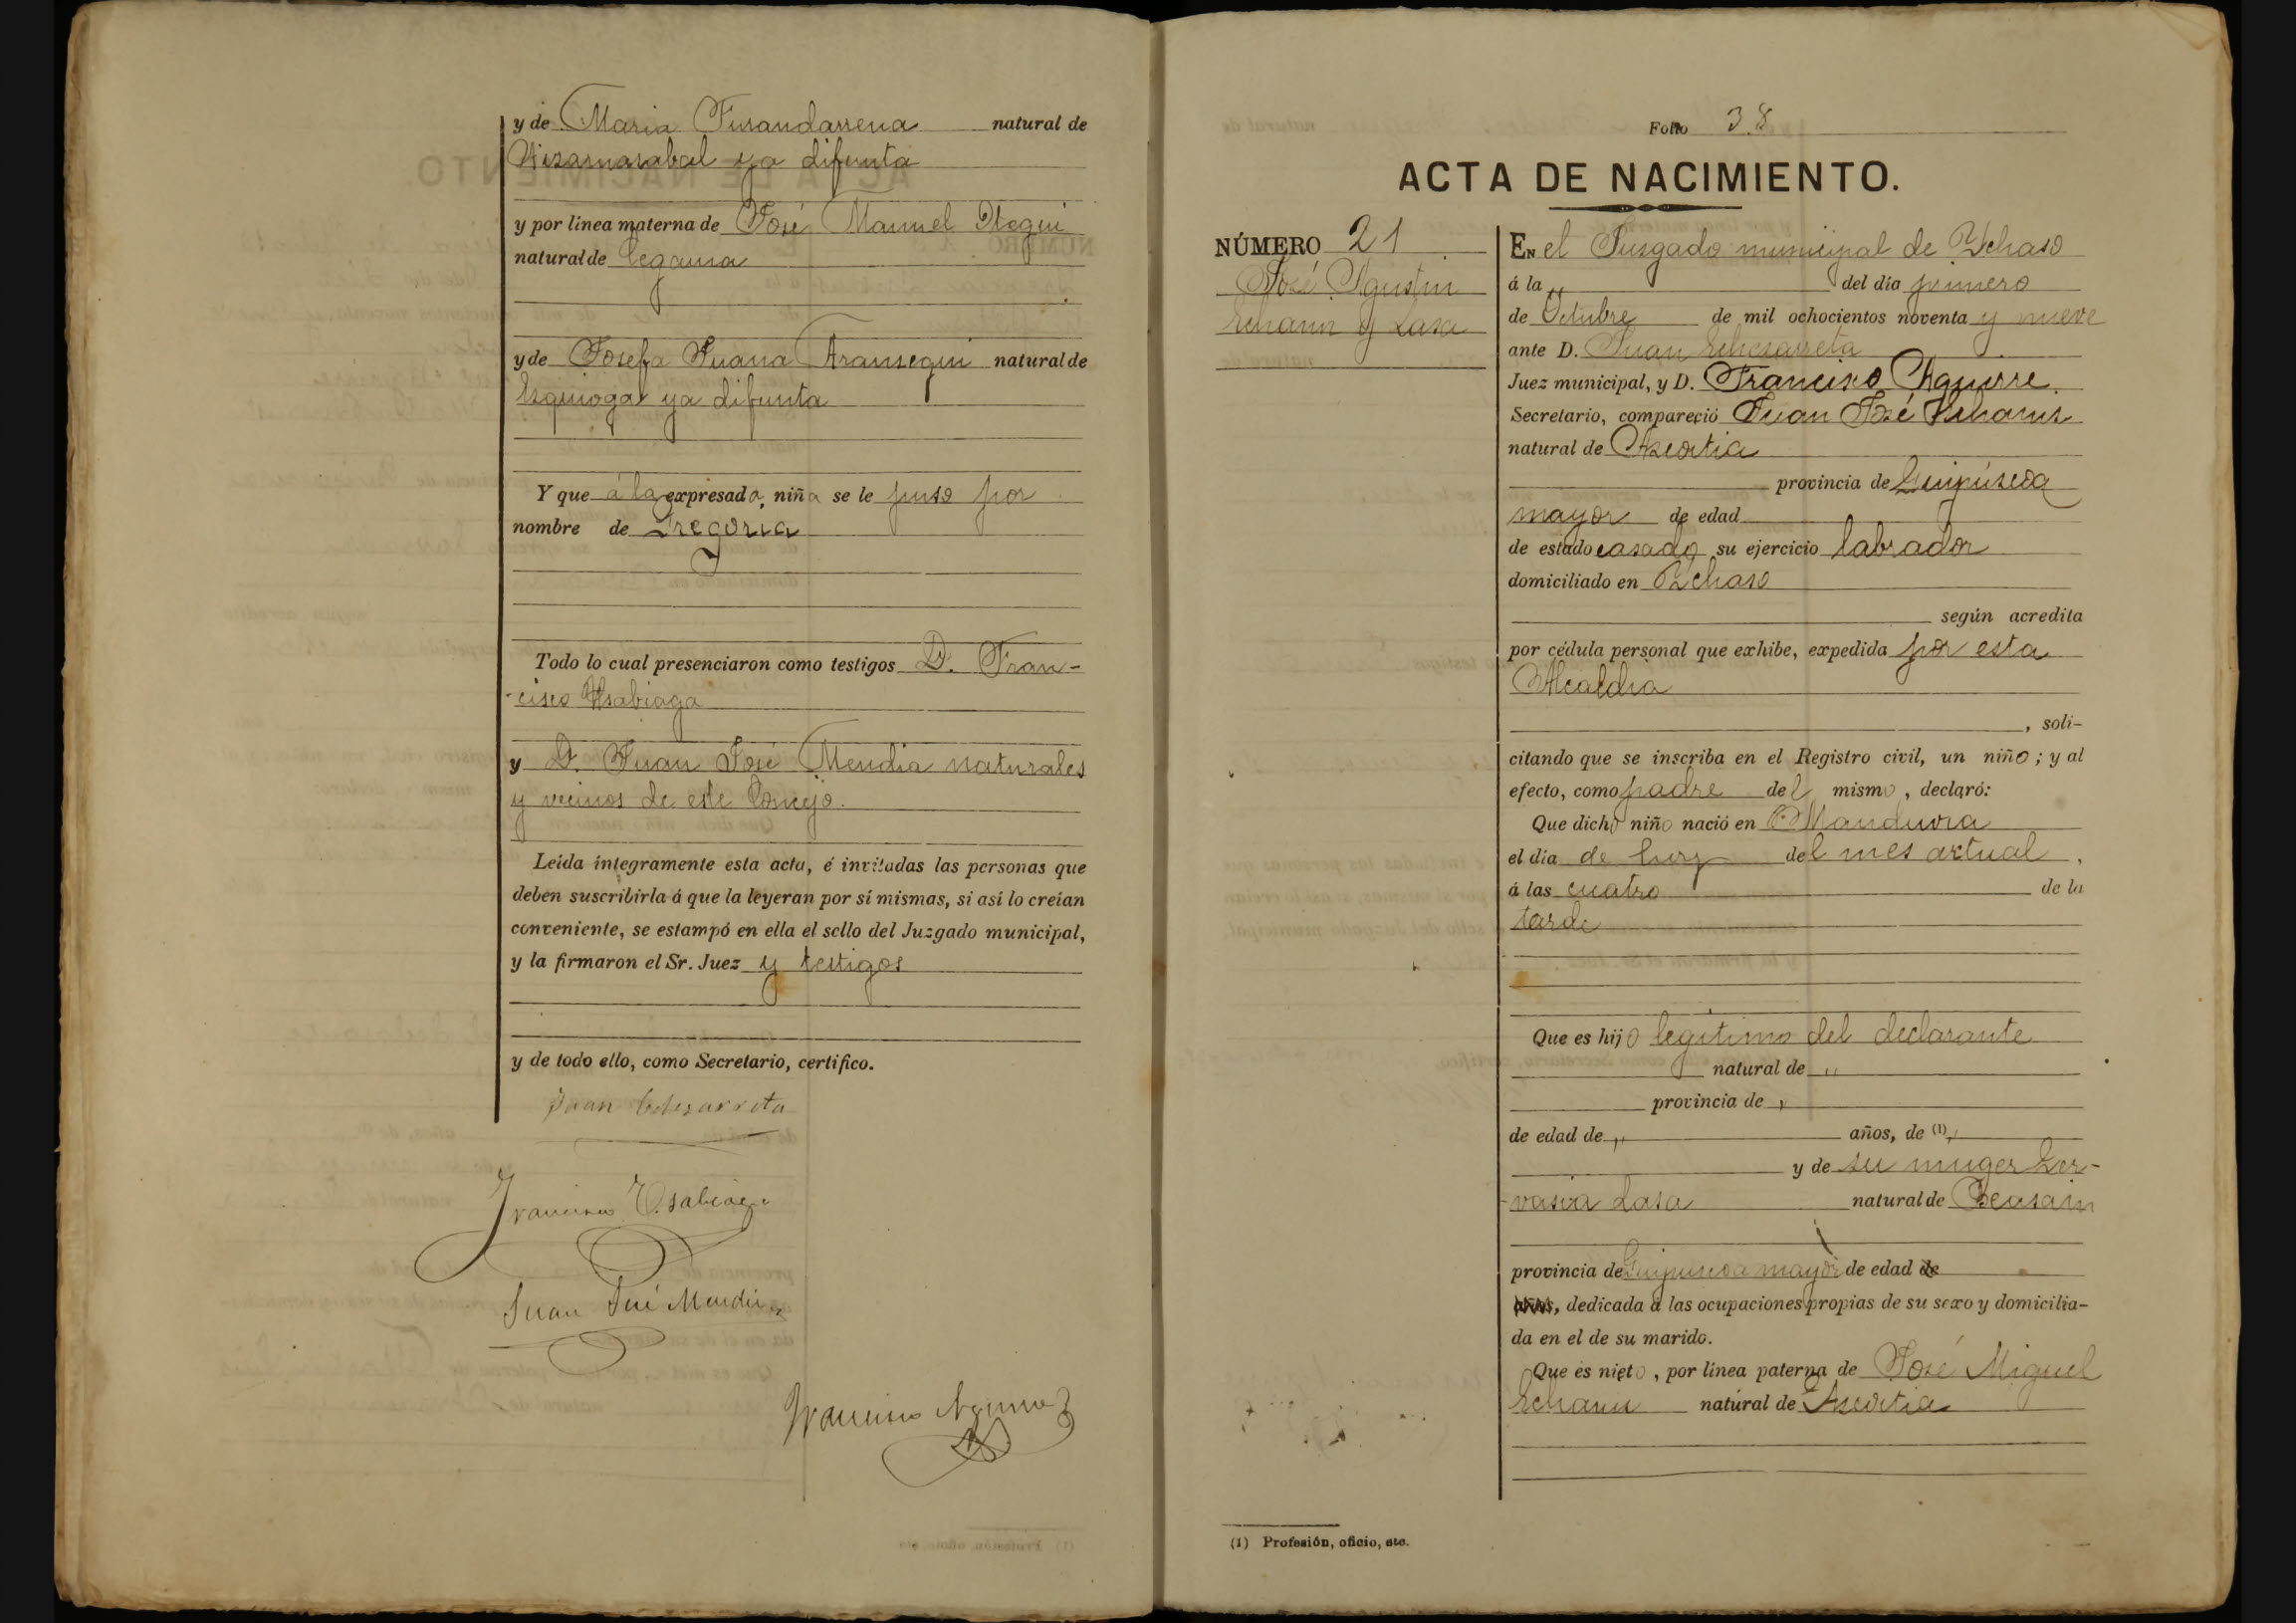 y de Maria Turandarrena natural de
Visarnasabal ya difunta
y por línea materna de José Manuel Otegui
natural de Cegama
y de Josefa Juana Aranseguí natural de
Esquioga ya difunta
Y que á la expresada, niña se le puso por
nombre de Gregoria
Todo lo cual presenciaron como testigos D. Fran-
-cisco Usabiaga
y D. Juan José Mendia naturales
y vecinos de este Concejo.
Leída íntegramente esta acta, é invitadas las personas que
deben suscribirla á que la leyeran por sí mismas, si así lo creían
conveniente, se estampó en ella el sello del Juzgado municipal,
y la firmaron el Sr. Juez y testigos
y de todo ello, como Secretario, certifico.
Juan Echezarreta
Francisco Usabiaga
Juan José Mendia
Francisco Aguirre
Folio 38
ACTA DE NACIMIENTO.
NÚMERO 21
José Agustin
Echaniz y Lasa
EN el Jusgado municipal de Ychaso
á la " del día primero
de Octubre de mil ochocientos noventa y nueve
ante D. Juan Echezarreta
Juez municipal, y D. Francisco Aguirre
Secretario, compareció Juan José Echaniz
natural de Azcoitia
provincia de Guipúscoa
mayor de edad
de estado casado su ejercicio labrador
domiciliado en Ychaso
según acredita
por cédula personal que exhibe, expedida por esta
Alcaldia
, soli-
citando que se inscriba en el Registro civil, un niño; y al
efecto, como padre del mismo, declaró:
Que dicho niño nació en Manduvia
el día de hoy del mes actual,
á las cuatro de la
tarde
Que es hijo legitimo del declarante
natural de "
provincia de "
de edad de " años, de (1) "
y de su muger Ger-
-vasia Lasa natural de Beasain
provincia de Guipuscoa mayor de edad de
años, dedicada á las ocupaciones propias de su sexo y domicilia-
da en el de su marido.
Que es nieto, por línea paterna de José Miguel
Echaniz natural de Ascoitia
(1) Profesión, oficio, etc.